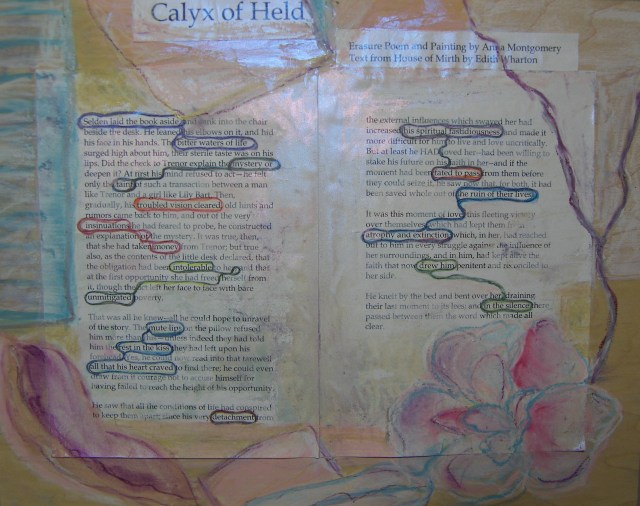 Calyx of Held
Erasure Poem and Painting by Anna Montgomery
Text from House of Mirth by Edith Wharton
Selden laid the book aside, and sank into the chair
beside the desk. He leaned his elbows on it, and hid
his face in his hands. The bitter waters of life
surged high about him, their sterile taste was on his
lips. Did the check to Trenor explain the mystery or
deepen it? At first his mind refused to act—he felt
only the taint of such a transaction between a man
like Trenor and a girl like Lily Bart. Then,
gradually, his troubled vision cleared, old hints and
rumors came back to him, and out of the very
insinuations he had feared to probe, he constructed
an explanation of the mystery. It was true, then,
that she had taken money from Trenor; but true
also, as the contents of the little desk declared, that
the obligation had been intolerable to her, and that
at the first opportunity she had freed herself from
it, though the act left her face to face with bare
unmitigated poverty.
That was all he knew—all he could hope to unravel
of the story. The mute lips on the pillow refused
him more than this—unless indeed they had told
him the rest in the kiss they had left upon his
he could now read into that farewell
all that his heart craved to find there; he could even
draw from it courage not to accuse himself for
having failed to reach the height of his opportunity.
He saw that all the conditions of life had conspired
to keep them apart; since his very detachment from
the external influences which swayed her had
increased his spiritual fastidiousness, and made it
more difficult for him to live and love uncritically.
But at least he HAD loved her—had been willing to
stake his future on his faith in her—and if the
moment had been fated to pass from them before
they could seize it, he saw now that, for both, it had
been saved whole out of the ruin of their lives.
It was this moment of love, this fleeting victory
over themselves, which had kept them from
atrophy and extinction; which, in her, had reached
out to him in every struggle against the influence of
her surroundings, and in him, had kept alive the
faith that now drew him penitent and reconciled to
her side.
He knelt by the bed and bent over her, draining
their last moment to its lees; and in the silence there
passed between them the word which made all
clear.